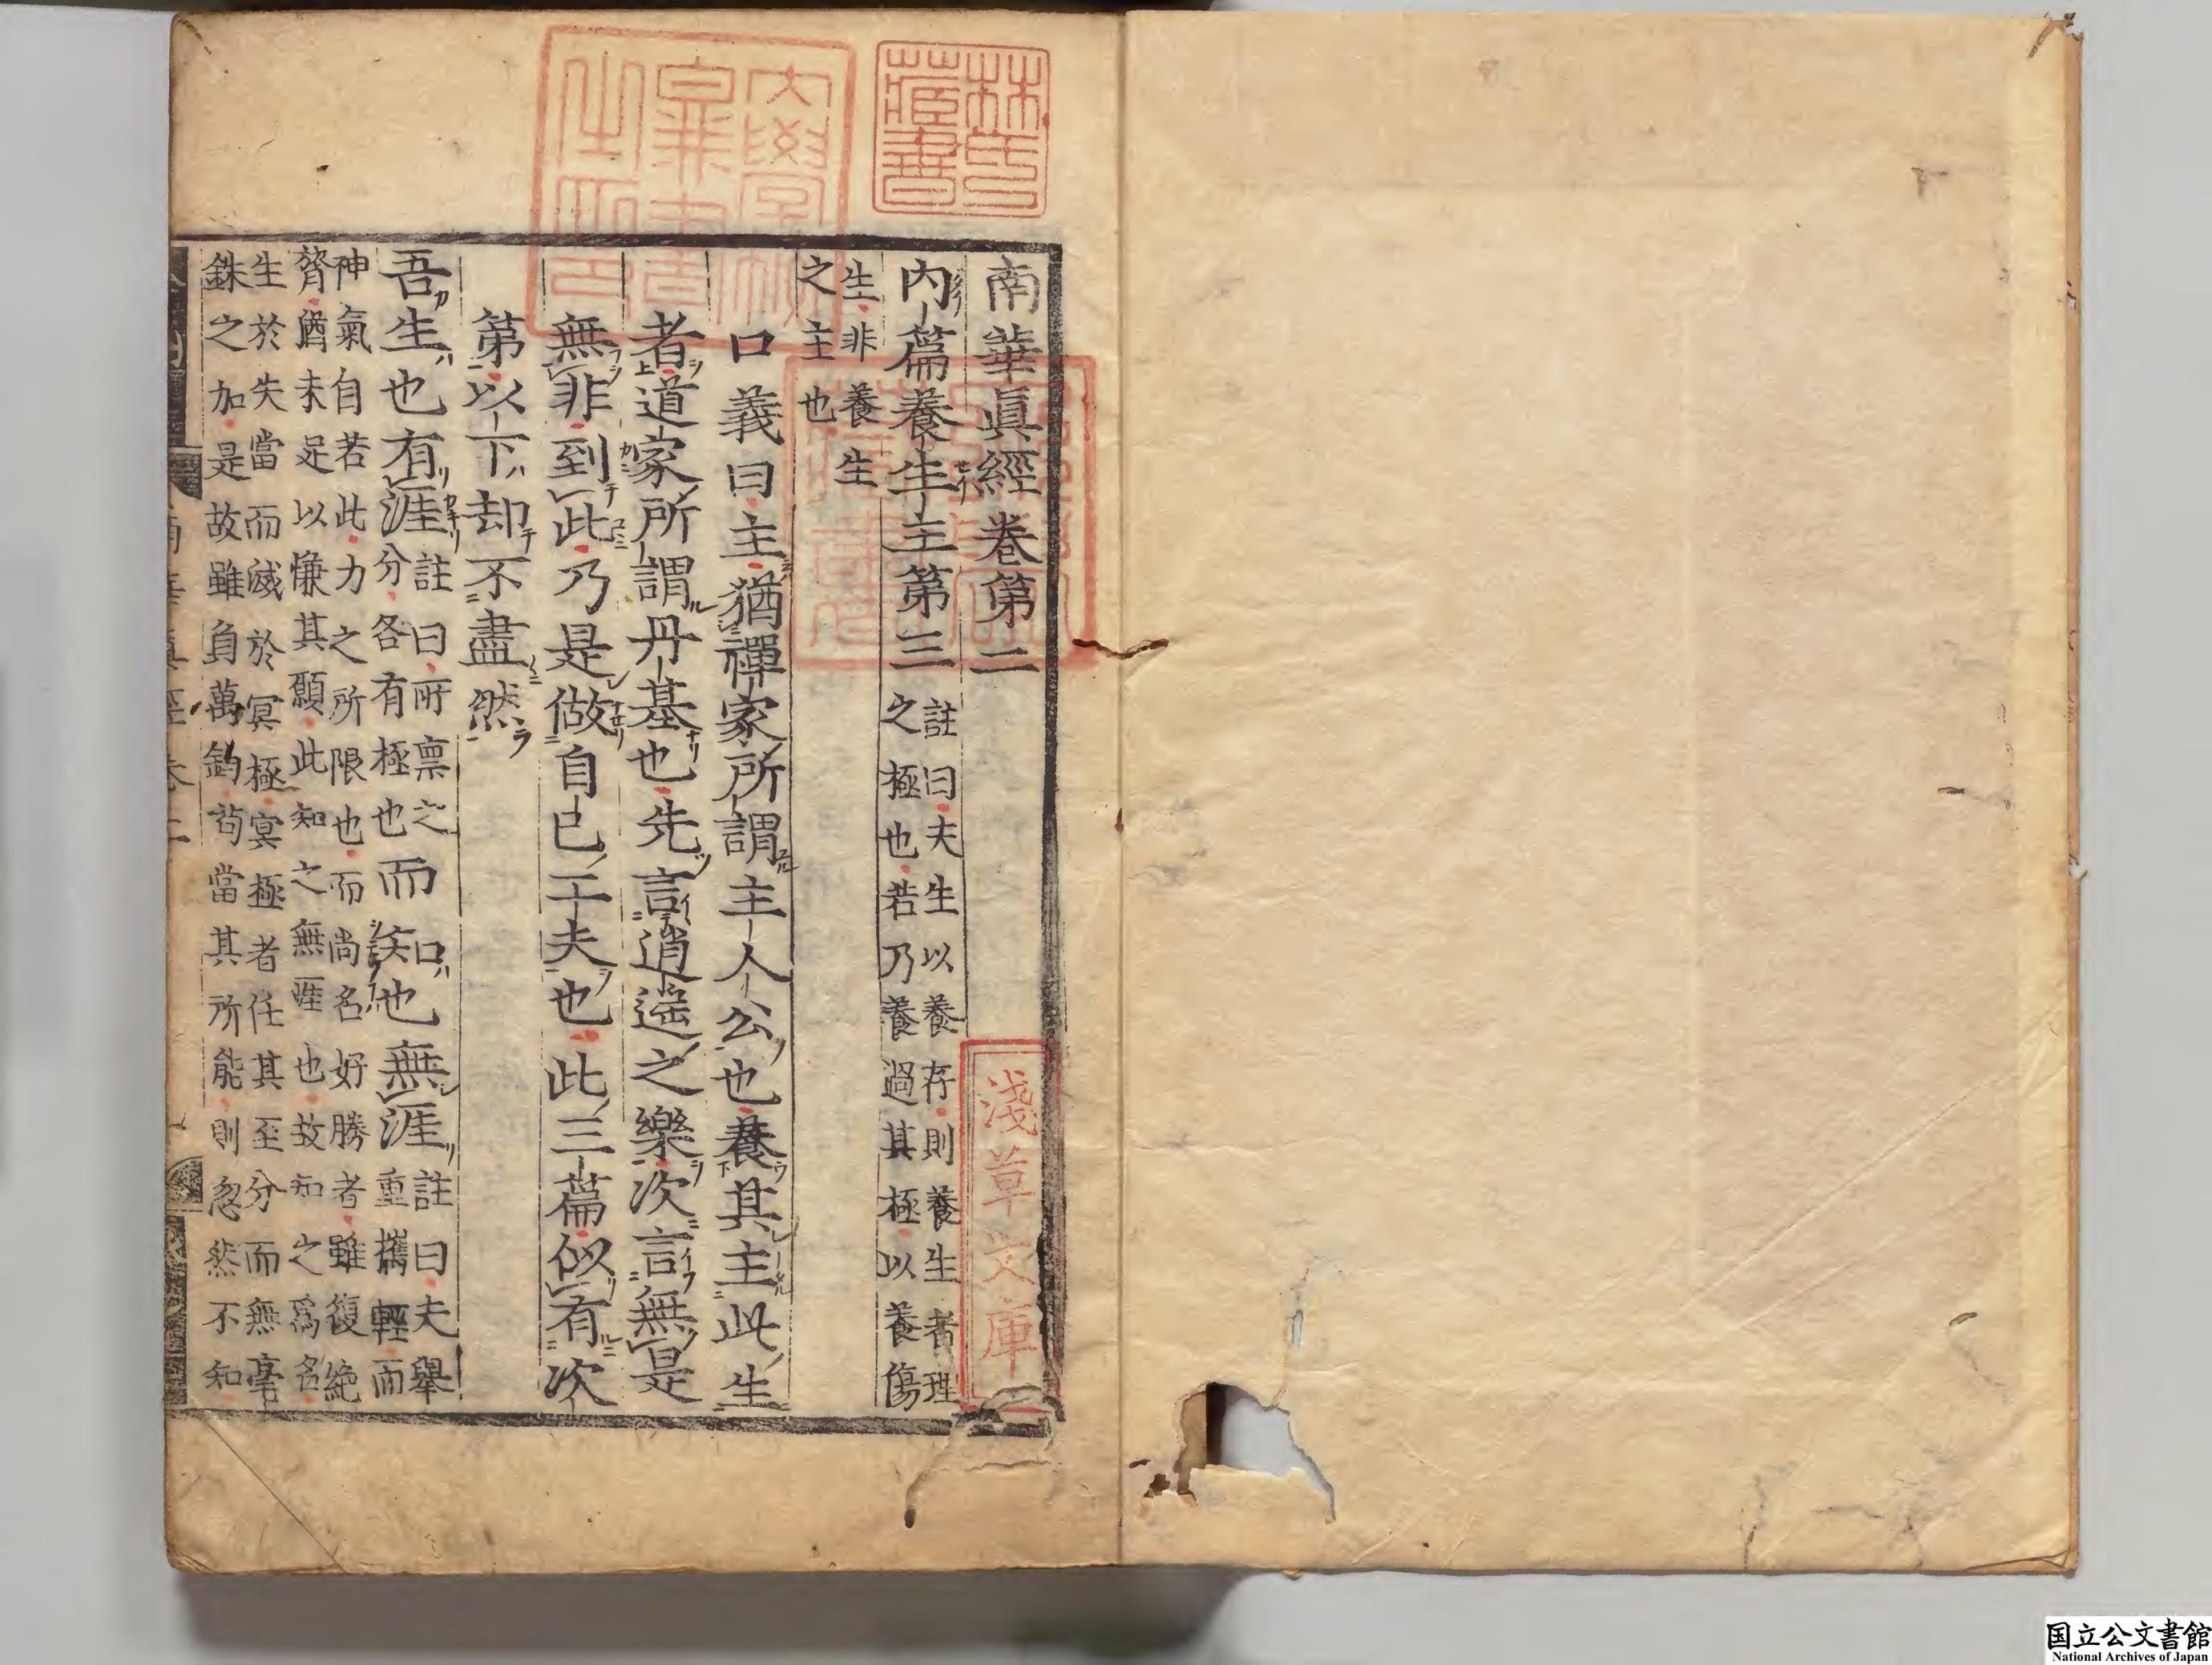 林氏藏書
南華眞經卷第二
内篇養生主第三
註曰夫生以養存則養生者理
之極也若乃養過其極以養傷
生非養生
之主也
口義曰主猶禪家所謂主人公也養其主此生
者道家所謂丹基也先言逍遥之樂次言無是
無非到此乃是做自己工夫也此三篇似有次
第以下却不盡然
吾生也有涯
註曰所禀之
分各有極也
而知也無涯
註曰夫舉
重攜輕而
神氣自若此力之所限也而尚名好勝者雖復絶
膂猶未足以慊其願此知之無涯也故知之爲名
生於失當而滅於冥極冥極者任其至分而無毫
銖之加是故雖負萬鈞苟當其所能則忽然不知
淺草文庫
国立公文書館
National Archives of Japan